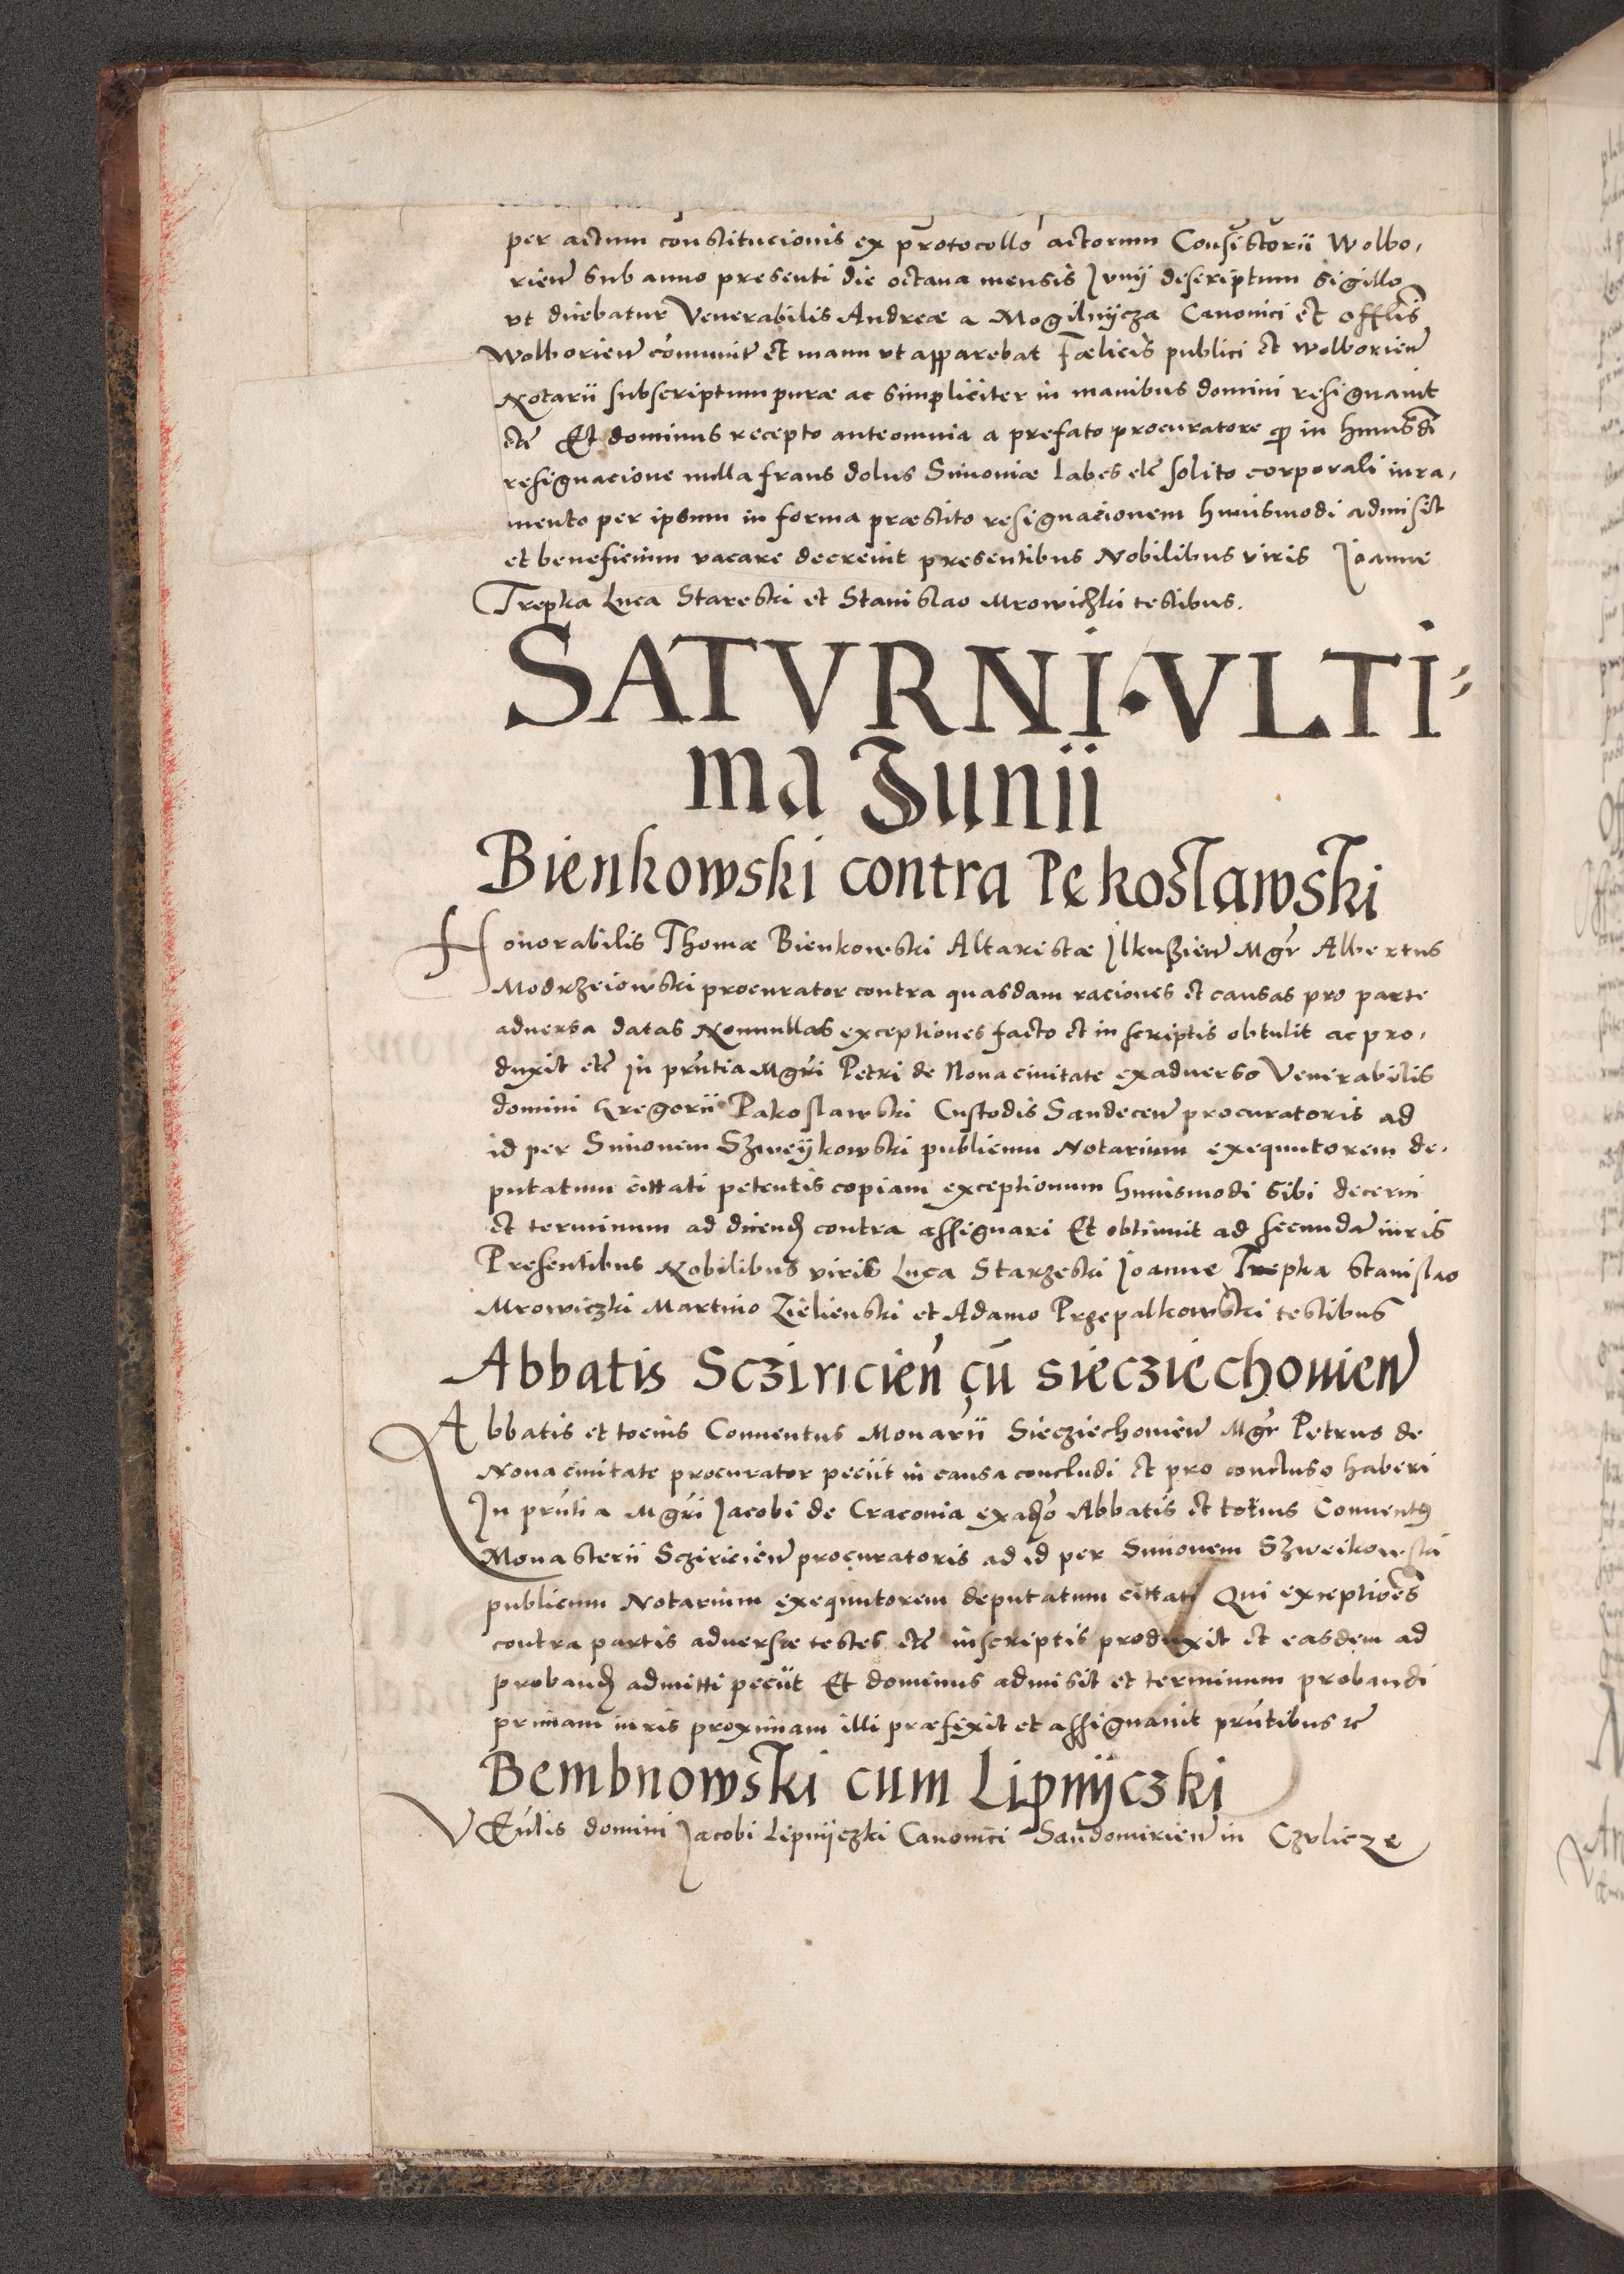 per actum constitucionis ex protocollo actorum Consistorii Wolbo,
rien̄ sub anno presenti die octaua mensis Junij descriptum sigillo
vt dicebatur Venerabilis Andreæ a Mogilnijcza Canonici et offlis̄
Wolborien̄ com̄unit̄ et manu vt apparebat Fœlicis publici et wolborien̄
Notarii subscriptum puræ ac simpliciter in manibus domini resignauit
etc̄ Et dominus recepto anteomnia a prefato procuratore ꝙ in hmōi
resignacione nulla fraus dolus Simoniæ labes etc̄ solito corporali iura,
mento per ipsum in forma præstito resignacionem huiusmodi admisit
et beneficium vacare decreuit presentibus Nobilibus viris Joanne
Trepka Luca Stareski et Stanislao Mrowichki testibus.
SATVRNI·VLTI⸗
ma Junii
Bienkowski contra Pękoslawski
Honorabilis Thomæ Bienkowski Altaristæ Jlkuszien̄ Mgr̄ Albertus
Modrzeiowski procurator contra quasdam raciones et causas pro parte
aduersa datas Nonnullas exceptiones facto et in scriptis obtulit ac pro,
duxit etc̄ in prn̄tia Mgr̄i Petri de Noua ciuitate exaduerso Venerabilis
domini Gregorii Pakoslawski Custodis Sandecen̄ procuratoris ad
id per Simonem Szweijkowski publicum Notarium exequutorem de,
putatum cittati petentis copiam exceptionum huiusmodi sibi decerni
et terminum ad dicend̄ contra assignari Et obtinuit ad secundā iuris
Presentibus Nobilibus viris Luca Starzeski Joanne Trepka Stanislao
Mrowiczki Martino Zielienski et Adamo Przepalkowski testibus
Abbatis Scziricień cū siecziechouien̄
Abbatis et tocius Conuentus Monarii Siecziechouien̄ Mgr̄ Petrus de
Noua ciuitate procurator peciit in causa concludi et pro concluso haberi
Jn prn̄tia Mgr̄i Jacobi de Cracouia exad̄so Abbatis et totius Conuentꝰ
Monasterii Scziricien̄ procuratoris ad id per Simonem Szweikowski
publicum Notarium exequutorem deputatum cittati Qui exceptiōes
contra partis aduersæ testes etc̄ inscriptis produxit et easdem ad
proband̄ admitti peciit Et dominus admisit et terminum probandi
primam iuris proximam illi præfixit et assignauit prn̄tibus ꝛc̄
Bembnowski cum Lipnijczki
VEn̄lis domini Jacobi Lipnijczki Canonici Sandomirien̄ in Czulicze